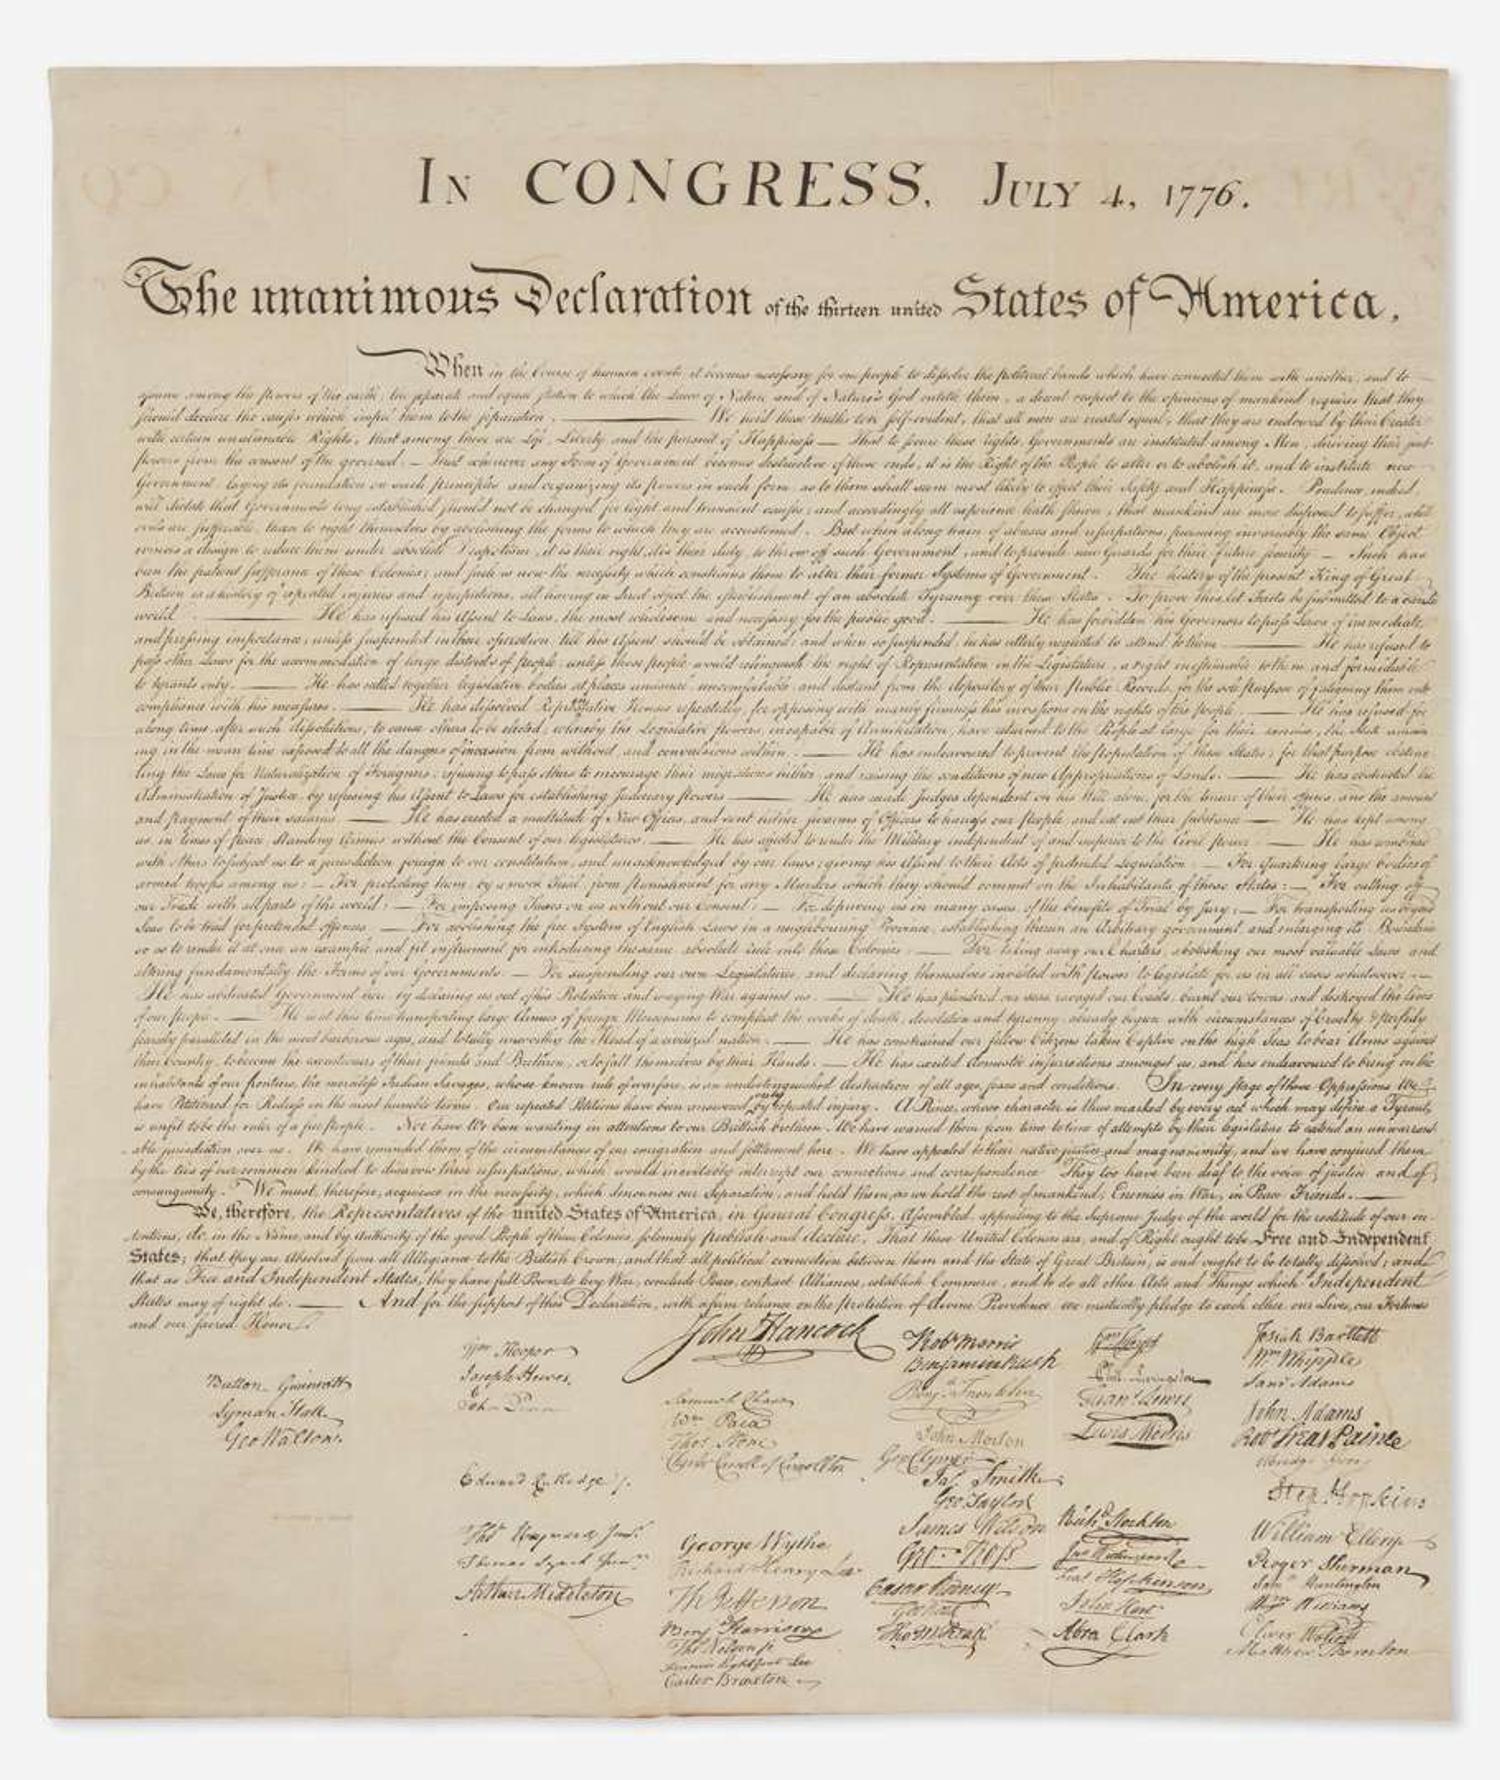 In CONGRESS, July 4, 1776.
The unanimous Declaration of the thirteen united States of America,
When in the Course of human events, it becomes necessary for one people to dissolve the political bands which have connected them with another, and to
assume among the powers of the earth, the separate and equal station to which the Laws of Nature and of Nature's God entitle them, a decent respect to the opinions of mankind requires that they
should declare the causes which impel them to the separation. — We hold these truths to be self-evident, that all men are created equal, that they are endowed by their Creator
with certain unalienable Rights, that among these are Life, Liberty and the pursuit of Happiness — That to secure these rights, Governments are instituted among Men, deriving their just
powers from the consent of the governed, — That whenever any Form of Government becomes destructive of these ends, it is the Right of the People to alter or to abolish it, and to institute new
Government, laying its foundation on such principles and organizing its powers in such form, as to them shall seem most likely to effect their Safety and Happiness. Prudence, indeed,
will dictate that Governments long established should not be changed for light and transient causes; and accordingly all experience hath shewn, that mankind are more disposed to suffer, while
evils are sufferable, than to right themselves by abolishing the forms to which they are accustomed. But when a long train of abuses and usurpations, pursuing invariably the same Object
evinces a design to reduce them under absolute Despotism, it is their right, it is their duty, to throw off such Government, and to provide new Guards for their future security — Such has
been the patient sufferance of these Colonies; and such is now the necessity which constrains them to alter their former Systems of Government. The history of the present King of Great
Britain is a history of repeated injuries and usurpations, all having in direct object the establishment of an absolute Tyranny over these States. To prove this, let Facts be submitted to a candid
world. — He has refused his Assent to Laws, the most wholesome and necessary for the public good. — He has forbidden his Governors to pass Laws of immediate
and pressing importance, unless suspended in their operation till his Assent should be obtained; and when so suspended, he has utterly neglected to attend to them. — He has refused to
pass other Laws for the accommodation of large districts of people, unless those people would relinquish the right of Representation in the Legislature, a right inestimable to them and formidable
to tyrants only. — He has called together legislative bodies at places unusual, uncomfortable, and distant from the depository of their Public Records, for the sole purpose of fatiguing them into
compliance with his measures. — He has dissolved Representative Houses repeatedly, for opposing with manly firmness his invasions on the rights of the people. — He has refused for
a long time, after such dissolutions, to cause others to be elected; whereby the Legislative powers, incapable of Annihilation, have returned to the People at large for their exercise; the State remain-
ing in the mean time exposed to all the dangers of invasion from without, and convulsions within. — He has endeavoured to prevent the population of these States; for that purpose obstruc-
ting the Laws for Naturalization of Foreigners; refusing to pass others to encourage their migrations hither, and raising the conditions of new Appropriations of Lands. — He has obstructed the
Administration of Justice, by refusing his Assent to Laws for establishing Judiciary powers — He has made Judges dependent on his Will alone, for the tenure of their offices, and the amount
and payment of their salaries. — He has erected a multitude of New Offices, and sent hither swarms of Officers to harrass our people, and eat out their substance — He has kept among
us, in times of peace, Standing Armies without the Consent of our legislatures. — He has affected to render the Military independent of and superior to the Civil power. — He has combined
with others to subject us to a jurisdiction foreign to our constitution, and unacknowledged by our laws; giving his Assent to their Acts of pretended Legislation: — For Quartering large bodies of
armed troops among us: — For protecting them, by a mock Trial, from punishment for any Murders which they should commit on the Inhabitants of these States: — For cutting off
our Trade with all parts of the world: — For imposing Taxes on us without our Consent: — For depriving us in many cases, of the benefits of Trial by Jury: — For transporting us beyond
Seas to be tried for pretended offences — For abolishing the free System of English Laws in a neighbouring Province, establishing therein an Arbitrary government, and enlarging its Boundaries
so as to render it at once an example and fit instrument for introducing the same absolute rule into these Colonies: — For taking away our Charters, abolishing our most valuable Laws, and
altering fundamentally the Forms of our Governments: — For suspending our own Legislatures, and declaring themselves invested with power to legislate for us in all cases whatsoever. —
He has abdicated Government here, by declaring us out of his Protection and waging War against us. — He has plundered our seas, ravaged our Coasts, burnt our towns, and destroyed the lives
of our people. — He is at this time transporting large Armies of foreign Mercenaries to compleat the works of death, desolation and tyranny, already begun with circumstances of Cruelty & perfidy
scarcely paralleled in the most barbarous ages, and totally unworthy the Head of a civilized nation. — He has constrained our fellow Citizens taken Captive on the high Seas to bear Arms against
their Country, to become the executioners of their friends and Brethren, or to fall themselves by their Hands. — He has excited domestic insurrections amongst us, and has endeavoured to bring on the
inhabitants of our frontiers, the merciless Indian Savages, whose known rule of warfare, is an undistinguished destruction of all ages, sexes and conditions. In every stage of these Oppressions We
have Petitioned for Redress in the most humble terms: Our repeated Petitions have been answered only by repeated injury. A Prince, whose character is thus marked by every act which may define a Tyrant,
is unfit to be the ruler of a free people. Nor have We been wanting in attentions to our Brittish brethren. We have warned them from time to time of attempts by their legislature to extend an unwarrant-
able jurisdiction over us. We have reminded them of the circumstances of our emigration and settlement here. We have appealed to their native justice and magnanimity, and we have conjured them
by the ties of our common kindred to disavow these usurpations, which, would inevitably interrupt our connections and correspondence. They too have been deaf to the voice of justice and of
consanguinity. We must, therefore, acquiesce in the necessity, which denounces our Separation, and hold them, as we hold the rest of mankind, Enemies in War, in Peace Friends. —
We, therefore, the Representatives of the united States of America, in General Congress, Assembled, appealing to the Supreme Judge of the world for the rectitude of our in-
tentions, do, in the Name, and by Authority of the good People of these Colonies, solemnly publish and declare, That these United Colonies are, and of Right ought to be Free and Independent
States; that they are Absolved from all Allegiance to the British Crown, and that all political connection between them and the State of Great Britain, is and ought to be totally dissolved; and
that as Free and Independent States, they have full Power to levy War, conclude Peace, contract Alliances, establish Commerce, and to do all other Acts and Things which Independent
States may of right do. — And for the support of this Declaration, with a firm reliance on the protection of divine Providence, we mutually pledge to each other our Lives, our Fortunes
and our sacred Honor.
Button Gwinnett
Lyman Hall
Geo Walton.
Wm Hooper
Joseph Hewes,
John Penn
Edward Rutledge /.
Thos Heyward Junr.
Thomas Lynch Junr.
Arthur Middleton
John Hancock
Samuel Chase
Wm Paca
Thos Stone
Charles Carroll of Carrollton
George Wythe
Richard Henry Lee
Th Jefferson
Benj Harrison
Thos Nelson jr.
Francis Lightfoot Lee
Carter Braxton
Robt Morris
Benjamin Rush
Benj Franklin
John Morton
Geo Clymer
Jas Smith
Geo Taylor
James Wilson
Geo Ross
Caesar Rodney
Geo Read
Tho M:Kean
Wm Floyd
Phil. Livingston
Frans Lewis
Lewis Morris
Richd Stockton
Jno Witherspoon
Fras Hopkinson
John Hart
Abra Clark
Josiah Bartlett
Wm Whipple
Saml Adams
John Adams
Robt Treat Paine
Elbridge Gerry
Step Hopkins
William Ellery
Roger Sherman
Saml Huntington
Wm Williams
Oliver Wolcott
Matthew Thornton